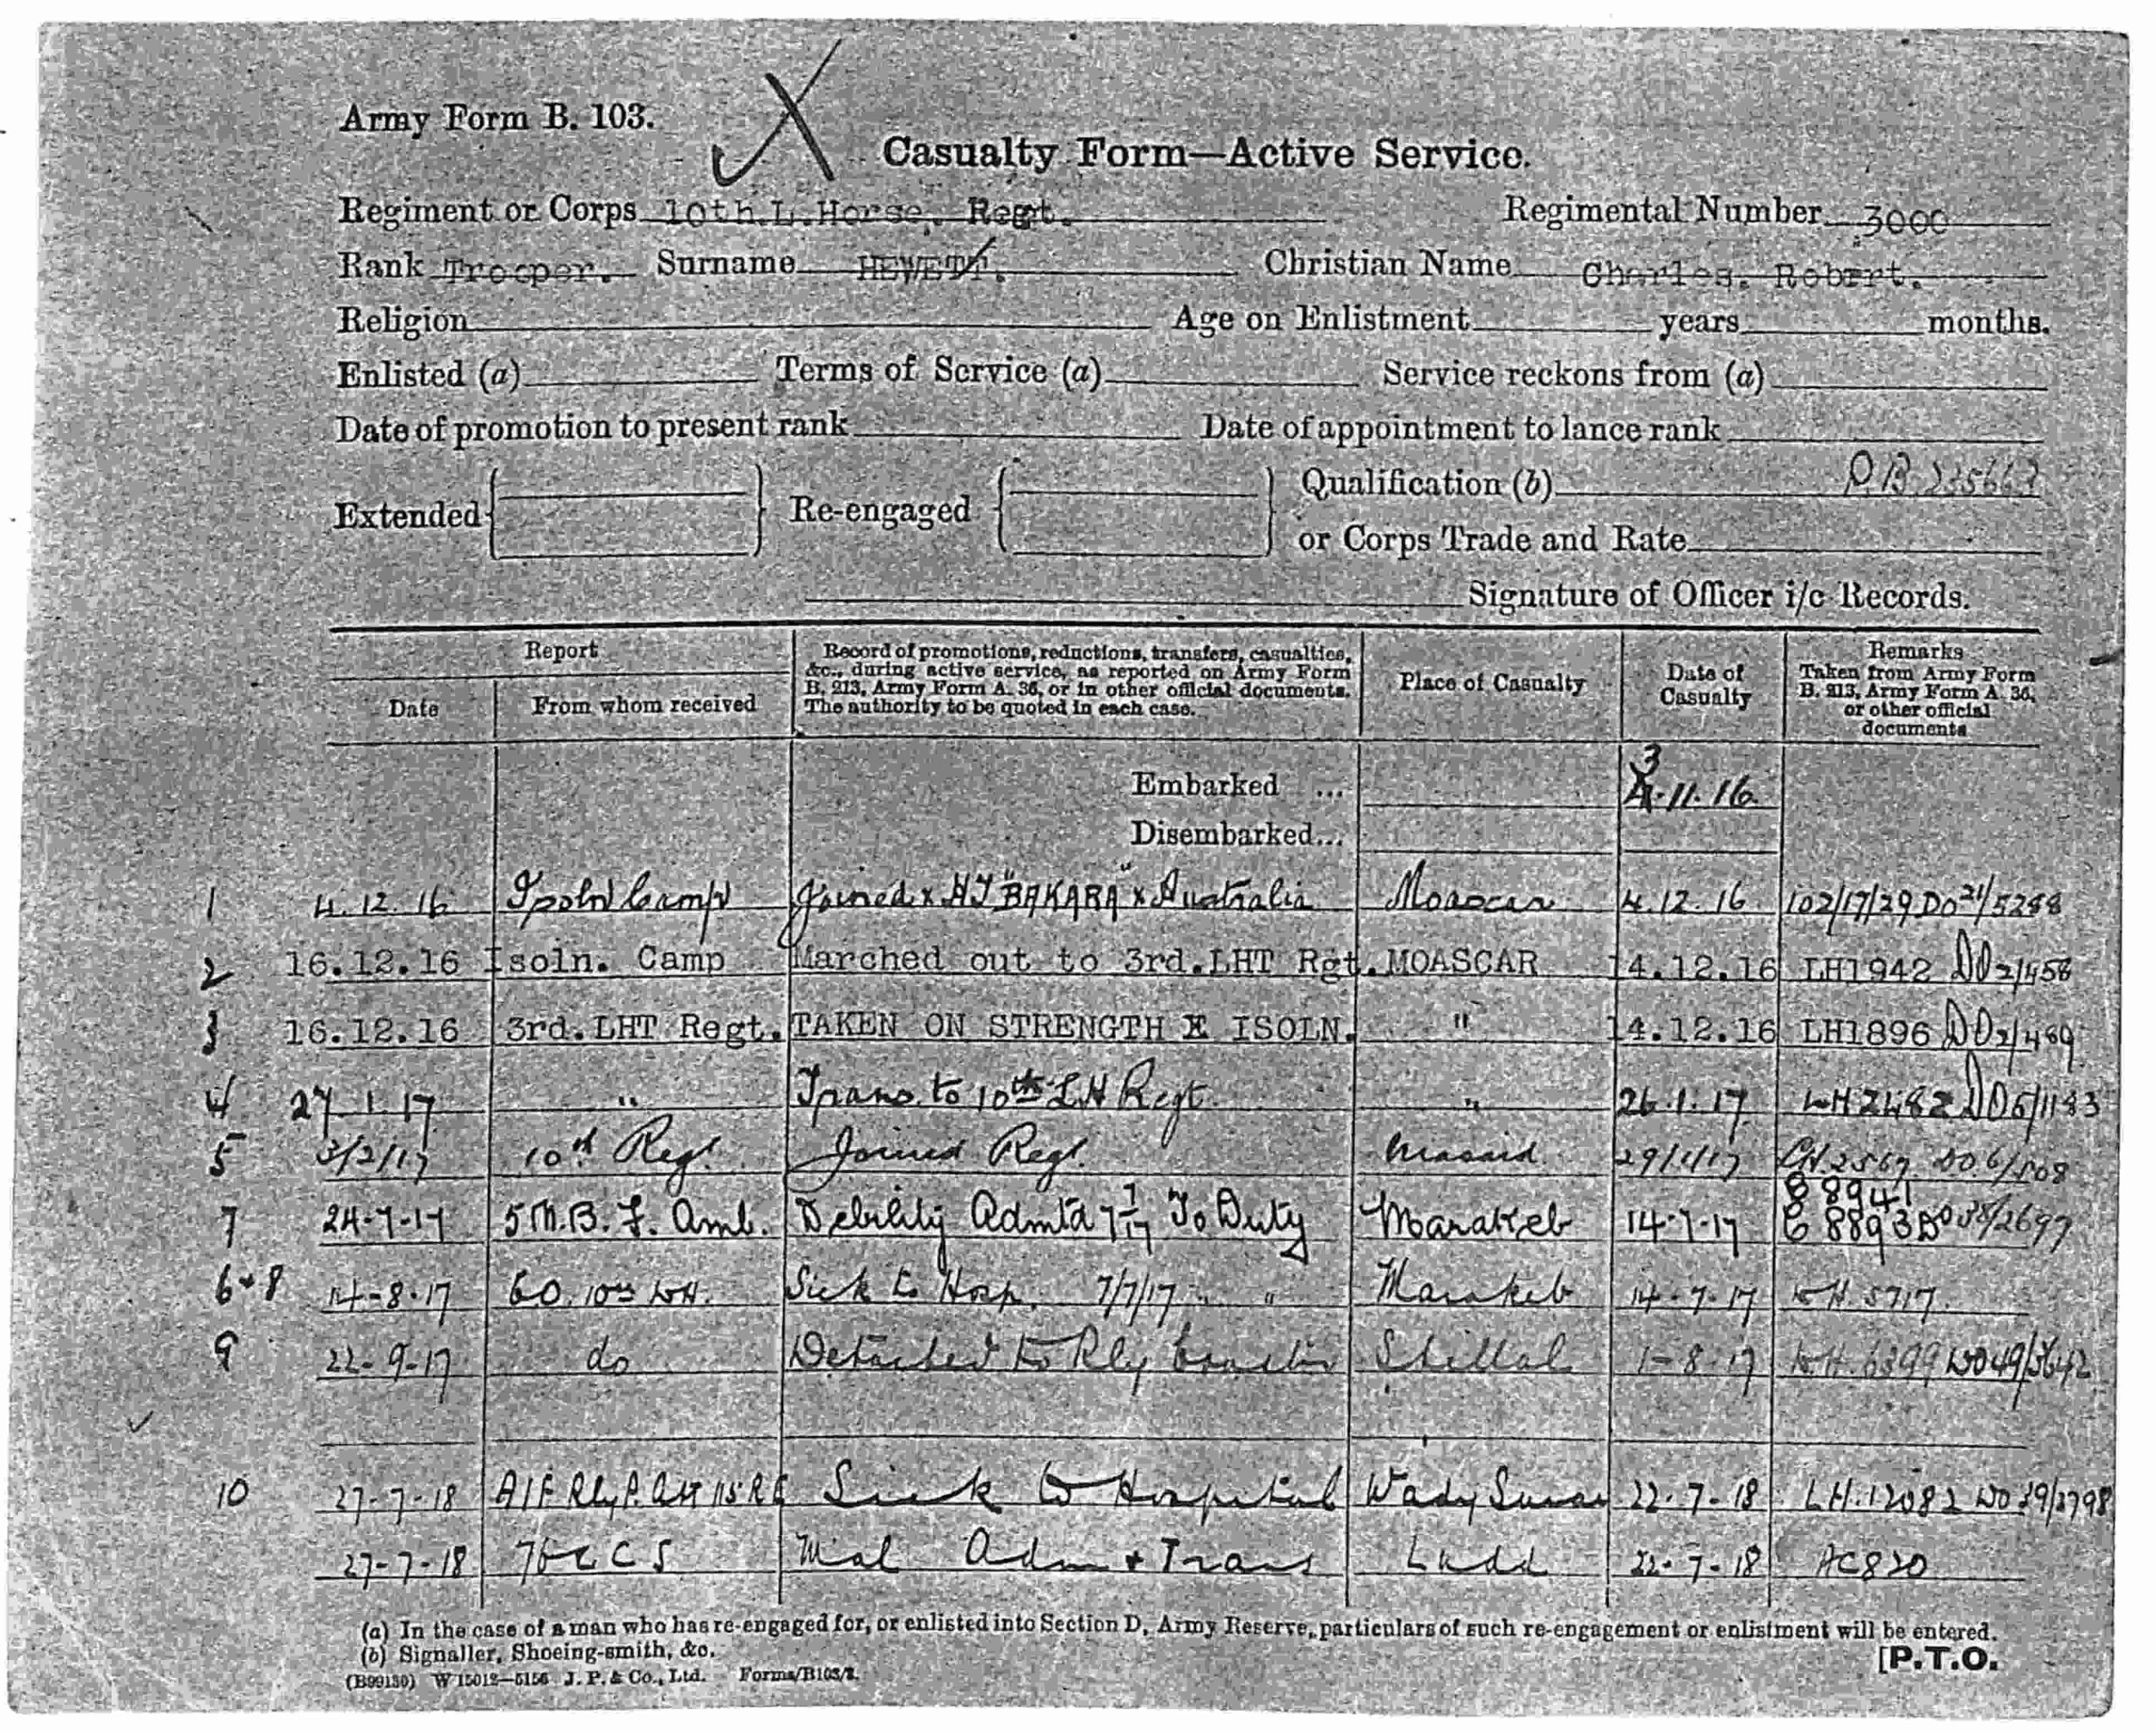 Army Form B. 103.
X
Casualty Form—Active Service.
Regiment or Corps 10th.L.Horse. Regt. Regimental Number 3000
Rank Trooper. Surname HEWETT. Christian Name Charles. Robert.
Religion Age on Enlistment years months.
Enlisted (a) Terms of Service (a) Service reckons from (a)
Date of promotion to present rank Date of appointment to lance rank
Extended Re-engaged Qualification (b)
or Corps Trade and Rate
Signature of Officer i/c Records.
Report
Date From whom received
Record of promotions, reductions, transfers, casualties, &c., during active service, as reported on Army Form B. 213, Army Form A. 36, or in other official documents. The authority to be quoted in each case.
Place of Casualty
Date of Casualty
Remarks Taken from Army Form B. 213, Army Form A. 36, or other official documents
Embarked ... 3.11.16
Disembarked...
1 4.12.16 Isoln Camp Joined x HT "BAKARA" x Australia Moascar 4.12.16 102/17/29 DO 21/5288
2 16.12.16 Isoln. Camp Marched out to 3rd.LHT Rgt. MOASCAR 14.12.16 LH1942 DO 2/458
3 16.12.16 3rd.LHT Regt. TAKEN ON STRENGTH X ISOLN. " 14.12.16 LH1896 DO 2/489
4 27.1.17 " Trans to 10th LH Regt. " 26.1.17 LH 2482 DO 5/1183
5 3/2/17 10th Regt. Joined Regt. Masaid 29/1/17 2567 DO 6/
7 24-7-17 5 M.B.F. Amb. Debility Admtd 7/7/17 To Duty Marakeb 14-7-17 B 8941 B 8893 DO 38/2697
6+8 14-8-17 CO. 10th LH. Sick to Hosp. 7/7/17 " " Marakeb 14-7-17 LH.5717
9 22-9-17 do Detached to Rly Shellal 1-8-17 LH.6399 DO 49/3642
10 27-7-18 AIF Rly Sick to Hospital Wady Surar 22-7-18 LH.12082 DO 39/2798
27-7-18 76 C C S Mal Adm + Trans Ludd 22-7-18 AC820
(a) In the case of a man who has re-engaged for, or enlisted into Section D, Army Reserve, particulars of such re-engagement or enlistment will be entered.
(b) Signaller, Shoeing-smith, &c.
[P.T.O.
(B99130) W 15012—5156 J. P. & Co., Ltd. Forms/B103/2.